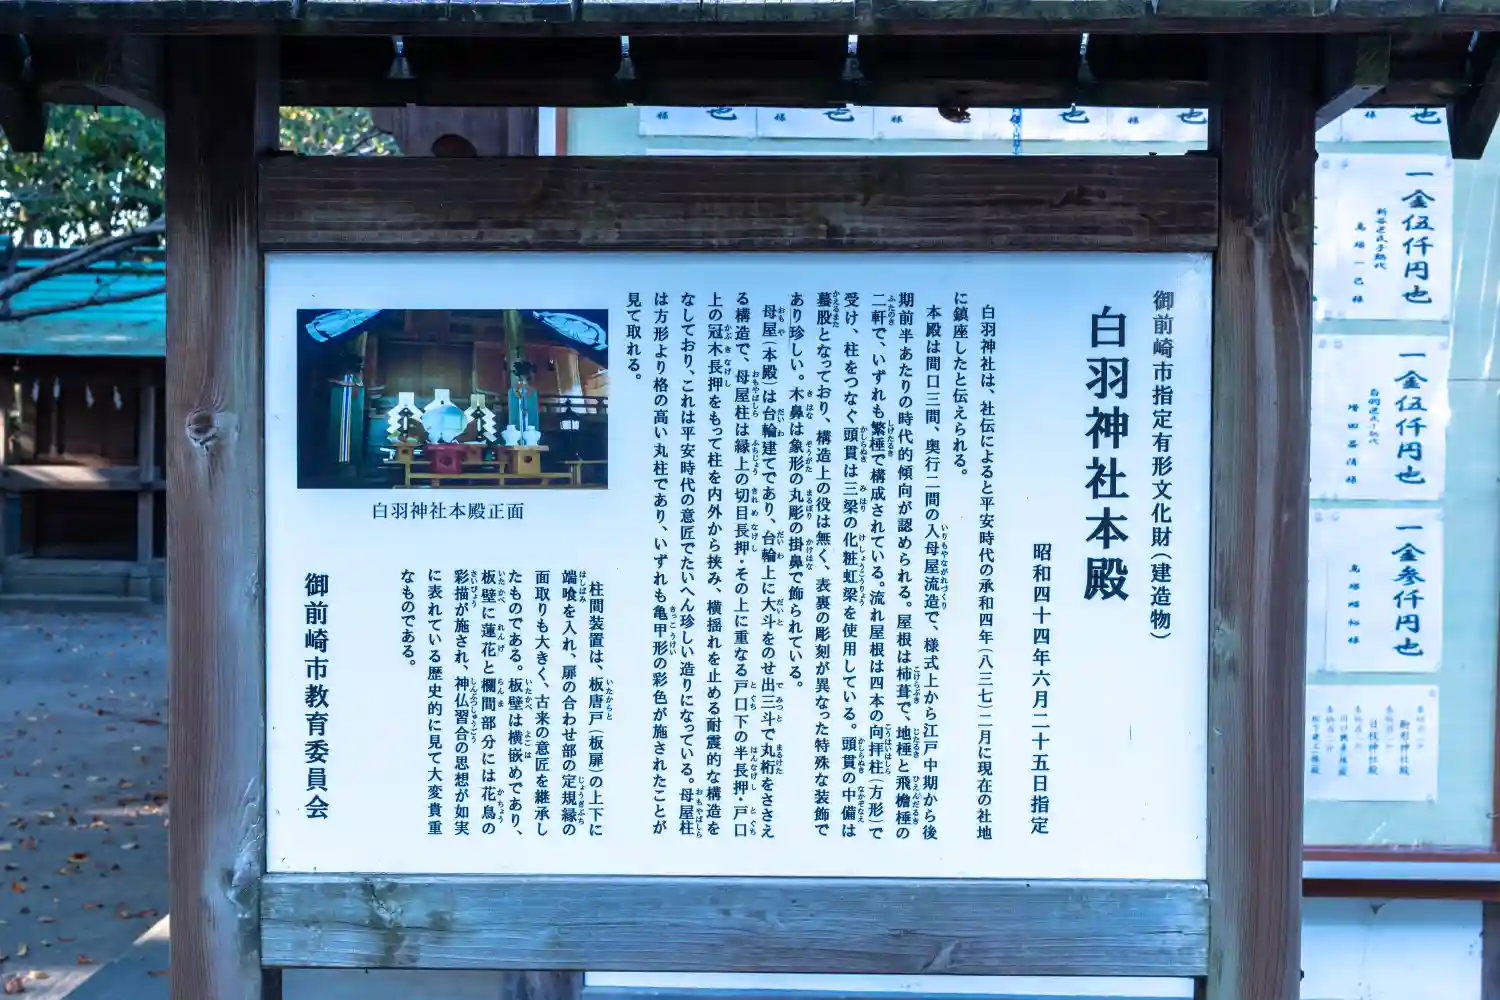 御前崎市指定有形文化財(建造物)
白羽神社本殿
昭和四十四年六月二十五日指定
白羽神社は、社伝によると平安時代の承和四年(八三七)二月に現在の社地
に鎮座したと伝えられる。
本殿は間口三間、奥行二間の入母屋流造で、様式上から江戸中期から後
期前半あたりの時代的傾向が認められる。屋根は杮葺で、地棰と飛檐棰の
二軒で、いずれも繁棰で構成されている。流れ屋根は四本の向拝柱(方形)で
受け、柱をつなぐ頭貫は三梁の化粧虹梁を使用している。頭貫の中備は
蟇股となっており、構造上の役は無く、表裏の彫刻が異なった特殊な装飾で
あり珍しい。木鼻は象形の丸彫の掛鼻で飾られている。
母屋(本殿)は台輪建てであり、台輪上に大斗をのせ出三斗で丸桁をささえ
る構造で、母屋柱は縁上の切目長押・その上に重なる戸口下の半長押・戸口
上の冠木長押をもって柱を内外から挟み、横揺れを止める耐震的な構造を
なしており、これは平安時代の意匠でたいへん珍しい造りになっている。母屋柱
は方形より格の高い丸柱であり、いずれも亀甲形の彩色が施されたことが
見て取れる。
白羽神社本殿正面
柱間装置は、板唐戸(板扉)の上下に
端喰を入れ、扉の合わせ部の定規縁の
面取りも大きく、古来の意匠を継承し
たものである。板壁は横嵌めであり、
板壁に蓮花と欄間部分には花鳥の
彩描が施され、神仏習合の思想が如実
に表れている歴史的に見て大変貴重
なものである。
御前崎市教育委員会
一金伍仟円也
一金伍仟円也
一金参仟円也